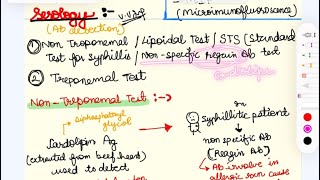 Serology :- V.V.Imp
(Ab detection)
(Microimmunofluorescence)
① Non Troponemal / Lipoidal Test / STS (Standard
Test for Syphilli's / Non-specific Reagin Ab test
② Treponemal Test
Non-Treponemal Test :->
diphosphatidyl
glycol
Cardiolipin Ag
(extracted from beef heart)
used to detect
In
Syphillitic patient
non specific Ab
(Reagin Ab)
Ab involve in
allergic rxn cause